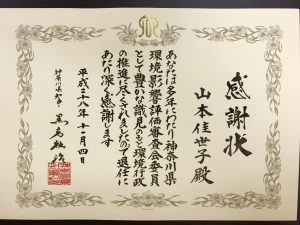 感謝状
山本佳世子殿
あなたは多年にわたり神奈川県
環境影響評価審査会委員
として豊かな識見のもと環境行政
の推進に尽くされましたので退任に
あたり深く感謝します
平成二十八年十一月四日
神奈川県知事 黒岩祐治